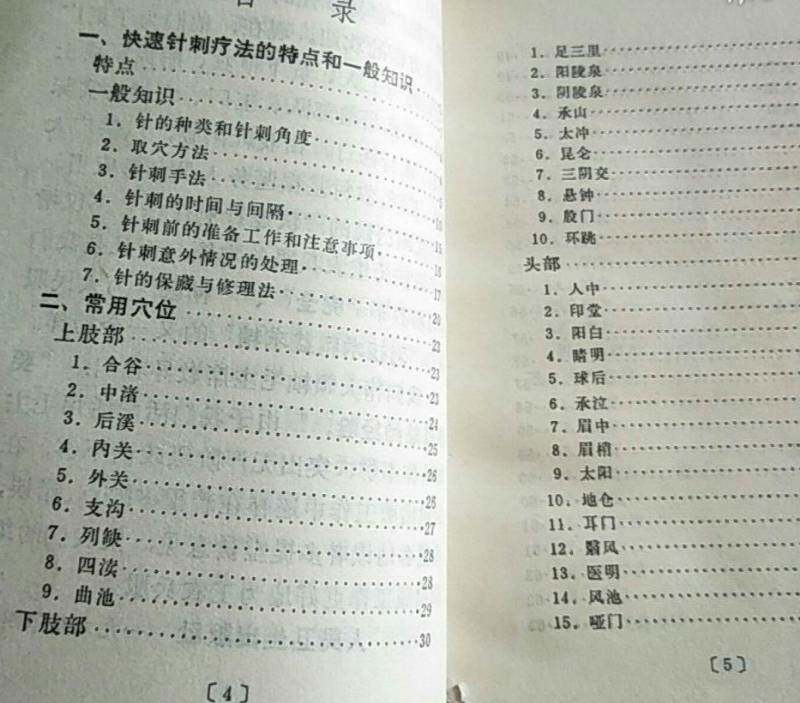 目 录
一、快速针刺疗法的特点和一般知识
特点
一般知识
1．针的种类和针刺角度
2．取穴方法
3．针刺手法
4．针刺的时间与间隔
5．针刺前的准备工作和注意事项 15
6．针刺意外情况的处理 16
7．针的保藏与修理法 17
二、常用穴位 20
上肢部 23
1．合谷 23
2．中渚 24
3．后溪 25
4．内关 26
5．外关 26
6．支沟 27
7．列缺 28
8．四渎 28
9．曲池 29
下肢部 30
〔4〕
1．足三里
2．阳陵泉
3．阴陵泉
4．承山
5．太冲
6．昆仑
7．三阴交
8．悬钟
9．殷门
10．环跳
头部
1．人中
2．印堂
3．阳白
4．睛明
5．球后
6．承泣
7．眉中
8．眉梢
9．太阳
10．地仓
11．耳门
12．翳风
13．医明
14．风池
15．哑门
〔5〕